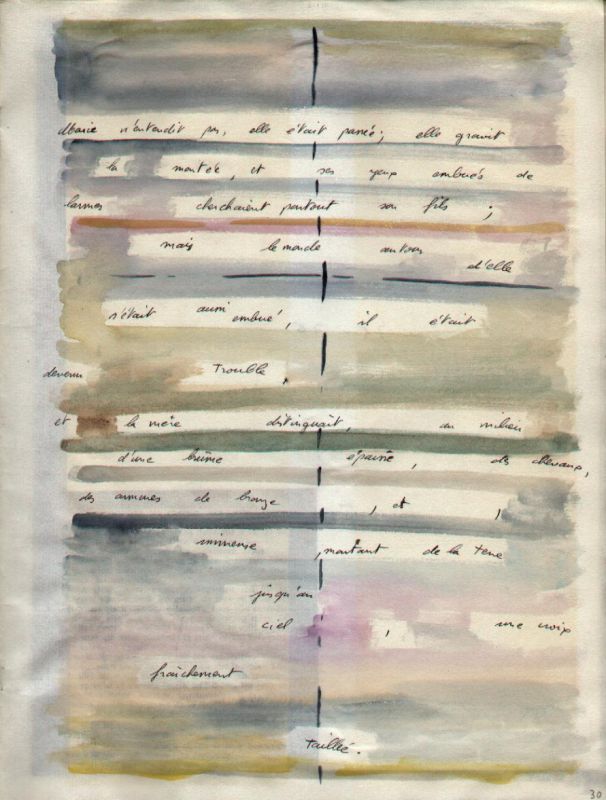 Marie n'entendit pas, elle était passée ; elle gravit
la montée, et ses yeux embués de
larmes cherchaient partout son fils ;
mais le monde autour d'elle
s'était aussi embué, il était
devenu trouble,
et la mère distinguait, au milieu
d'une brume épaisse, des chevaux,
des armures de bronze, et,
immense, montant de la terre
jusqu'au
ciel, une croix
fraîchement
taillée.
30